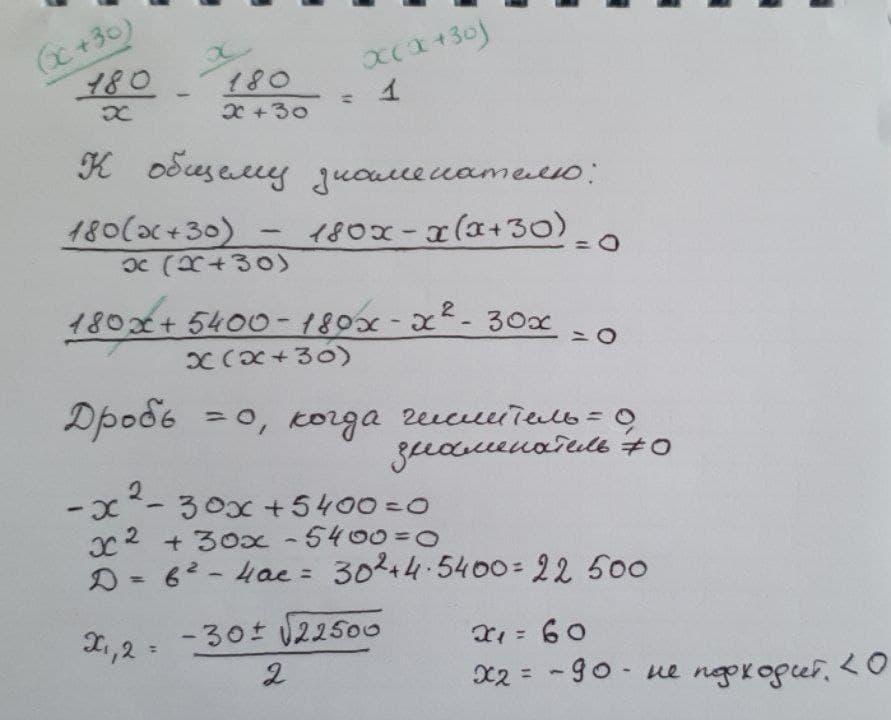 (x+30) x x(x+30)
180/x - 180/(x+30) = 1
К общему знаменателю:
(180(x+30) - 180x - x(x+30))/(x(x+30)) = 0
(180x + 5400 - 180x - x² - 30x)/(x(x+30)) = 0
Дробь = 0, когда числитель = 0,
знаменатель ≠ 0
-x² - 30x + 5400 = 0
x² + 30x - 5400 = 0
D = b² - 4ac = 30² + 4·5400 = 22 500
x₁,₂ = (-30 ± √22500)/2
x₁ = 60
x₂ = -90 - не подходит. < 0